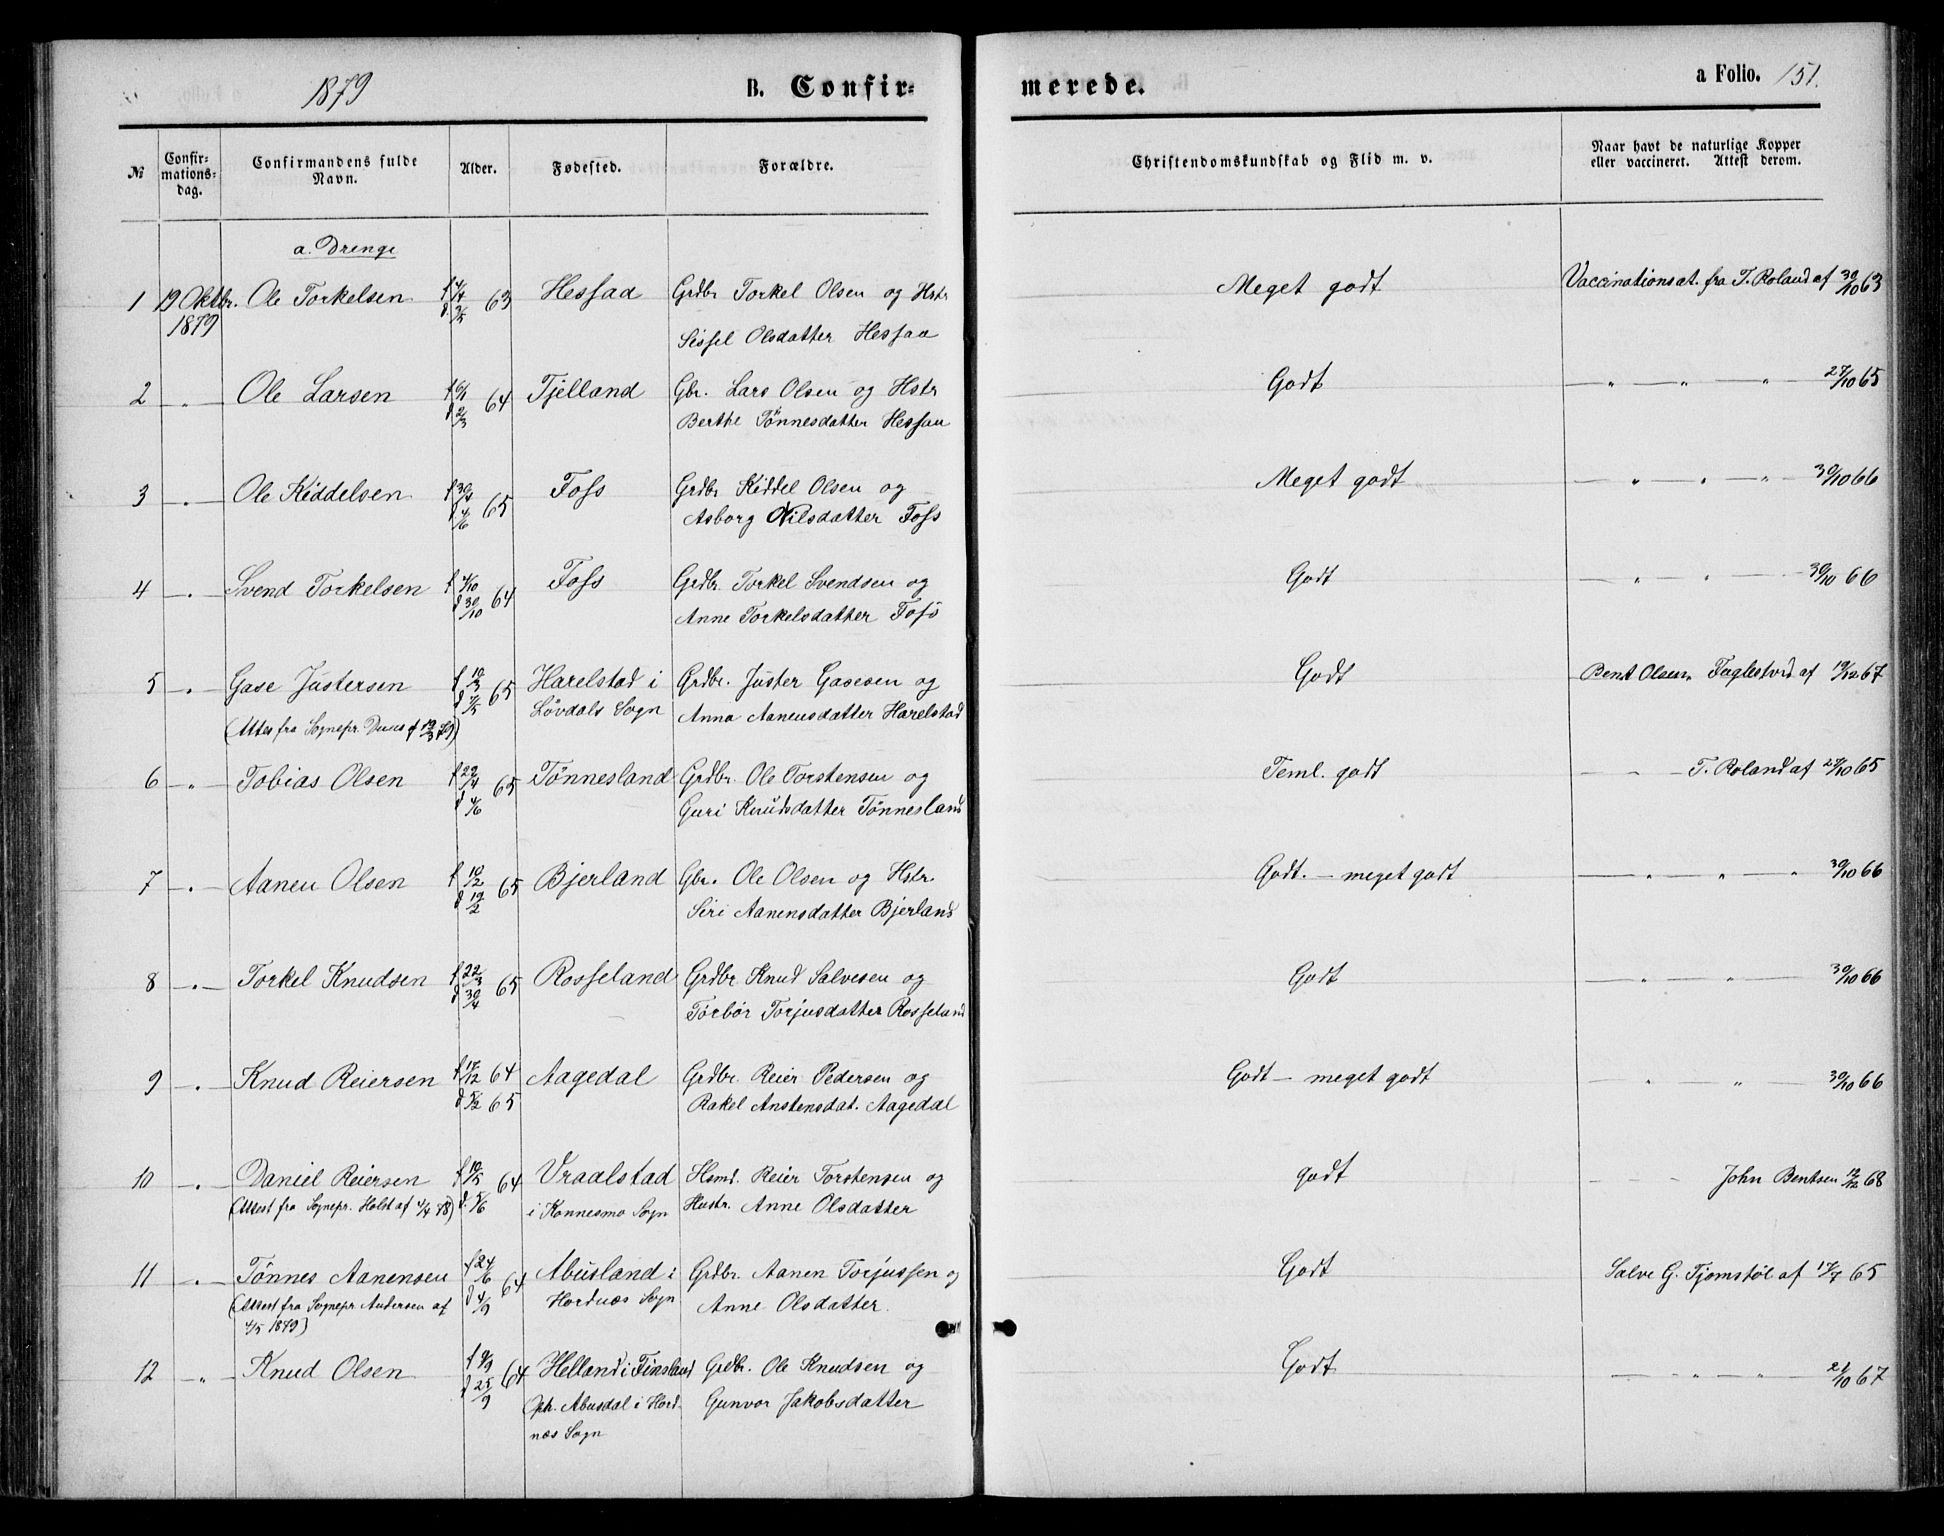 1879 B. Confir= merede. a Folio. 151.
№ Confir=mations=dag. Confirmandens fulde Navn. Alder. Fødested. Forældre. Christendomskundskab og Flid m. v. Naar havt de naturlige Kopper eller vaccineret. Attest derom.
a. Drenge
1 19 Oktbr. Ole Torkelsen 63 Hessaa Grdbr Torkel Olsen og Hstr Meget godt Vaccinationsat. fra T. Roland af 30/10 63
1879 Sissel Olsdatter Hessaa
2 " Ole Larsen 64 Tjelland Gbr. Lars Olsen og Hstr Godt " " " 27/10 65
Berthe Tönnesdatter Hessaa
3 " Ole Kiddelsen f 30/4 65 Foss Grdbr Kiddel Olsen og Meget godt " " " 30/10 66
d 4/6 Asborg Nilsdatter Foss
4 " Svend Torkelsen 64 Foss Grdbr. Torkel Svendsen og Godt " " 30/10 66
d 30/10 Anne Torkelsdatter Foss
5 " Gase Justersen f 10/3 65 Harelstad i Grdbr. Juster Gasesen og Godt Bent Olsen Faglestved af 19/12 67
Løvdals Sogn Anna Aanensdatter Harelstad
(Attes fra Sognepr. af 19/3 79)
6 " Tobias Olsen f 29/4 65 Tönnesland Grdbr. Ole Torstensen og Teml. godt T. Roland af 27/10 65
d 4/6 Guri Knudsdatter Tönnesland
7 " Aanen Olsen f 10/2 65 Bjerland Gbr. Ole Olsen og Hstr. Godt. — meget godt " " " 30/10 66
d 19/2 Siri Aanensdatter Bjerland
8 " Torkel Knudsen f 22/3 65 Rosseland Grdbr Knud Salvesen og Godt " " 30/10 66
d 30/4 Torbor Torjusdatter Rosseland
9 " Knud Reiersen f 17/12 64 Aagedal Grdbr. Reier Pedersen og Godt — meget godt " " 30/10 66
d 5/2 65 Rakel Anstensdat. Aagedal
10 " Daniel Reiersen f 10/5 64 Vraalstad Hsmd. Reier Torstensen og godt John Bentsen 12/12 68
(Attest fra Sognepr. Holst af 4/4 78) d. 5/6 i Konnesmo Sogn Hustr. Anne Olsdatter
11 " Tönnes Aanensen f 24/6 64 Abusland i Grdbr. Aanen Torjussen og Godt Salve G. Tjomstøl af 17/7 65
(Attest fra Sognepr Andersen af d 4/9 Hordnæs Sogn Anne Olsdatter.
4/5 1879)
12 " Knud Olsen f 9/9 64 Helland i Finsland Grdbr. Ole Knudsen og Godt " " " 21/10 67
d 25/9 Oph. Abusdal i Hord- Gunvor Jakobsdatter
næs Sogn